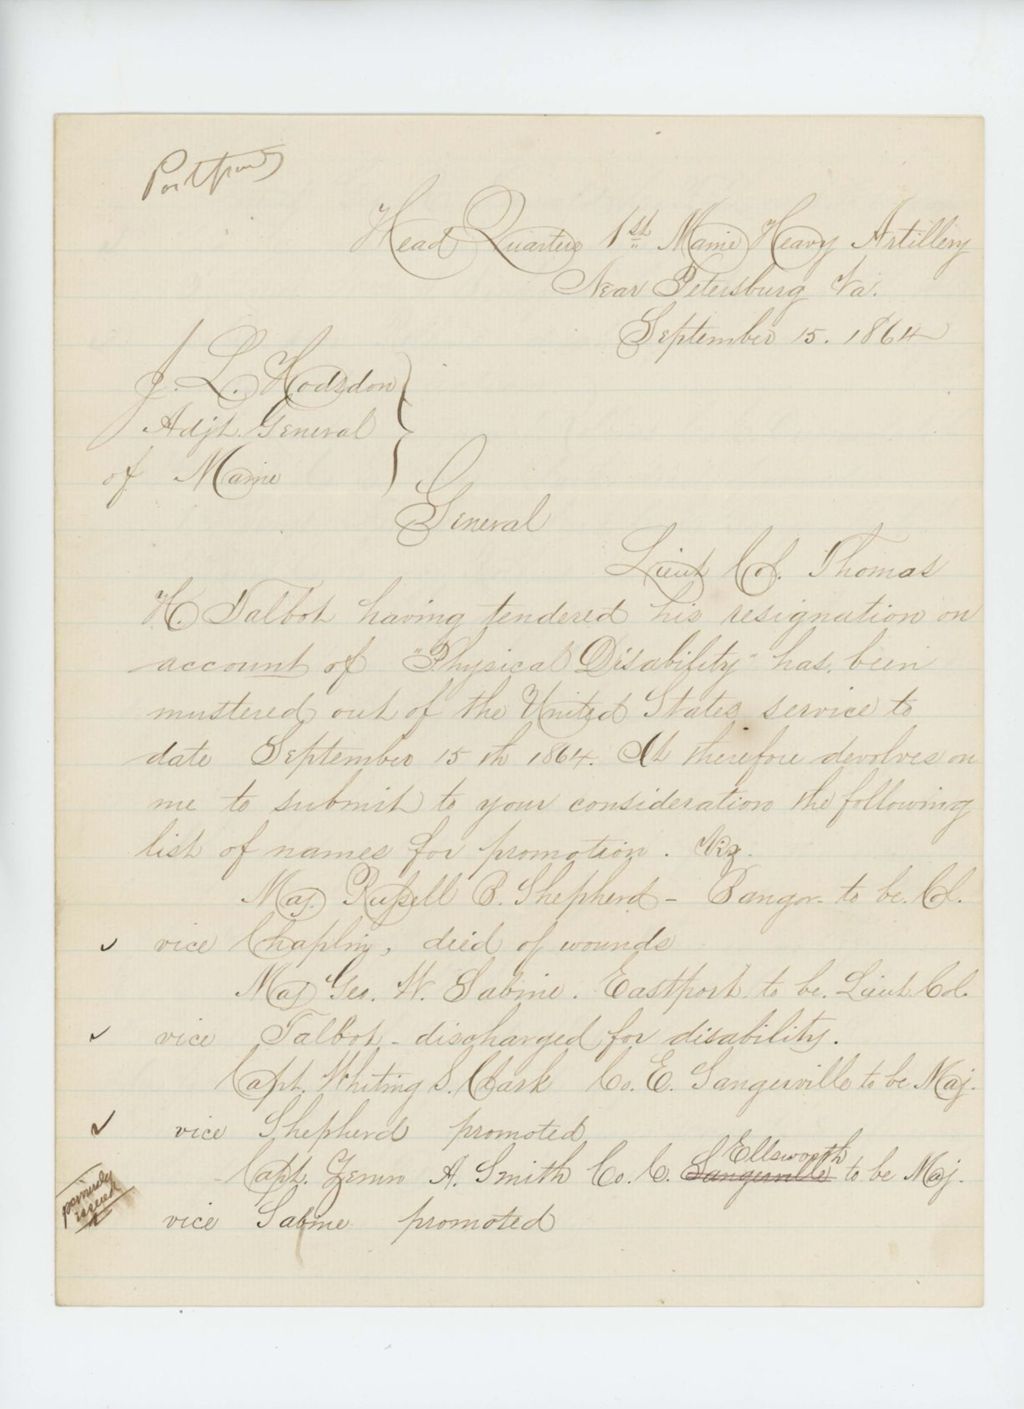 Head Quarters 1st Maine Heavy Artillery
Near Petersburg Va.
September 15. 1864
J. L. Hodsdon
Adjt. General
of Maine
General
Lieut Col. Thomas
H. Talbot having tendered his resignation on
account of "Physical Disability" has been
mustered out of the United States service to
date September 15th 1864. It therefore devolves on
me to submit to your consideration the following
list of names for promotion. Viz.
Maj. Russell B. Shepherd - Bangor - to be. Col.
✓ vice Chaplin, died of wounds
Maj Geo. W. Sabine. Eastport to be. Lieut. Col.
✓ vice Talbot - discharged for disability.
Capt. Whiting S. Clark Co. E. Sangerville to be Maj.
✓ vice Shepherd promoted
Ellsworth
Capt. Zemro A. Smith Co. C. Sangerville to be Maj.
vice Sabine promoted